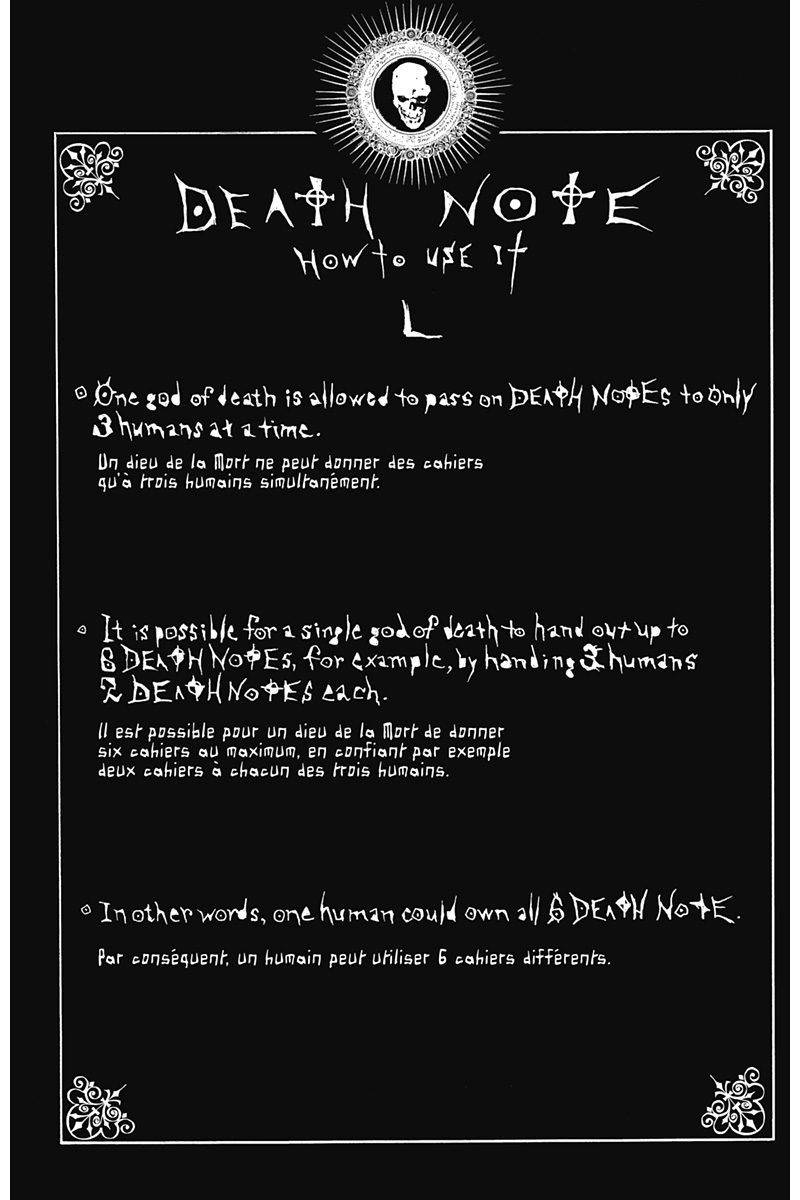 DEATH NOTE
HOW to USE It
L
One god of death is allowed to pass on DEATH NOTEs to only
3 humans at a time.
Un dieu de la Mort ne peut donner des cahiers
qu'à trois humains simultanément.
It is possible for a single god of death to hand out up to
6 DEATH NOTEs, for example, by handing 3 humans
2 DEATH NOTES each.
Il est possible pour un dieu de la Mort de donner
six cahiers au maximum, en confiant par exemple
deux cahiers à chacun des trois humains.
In other words, one human could own all 6 DEATH NOTE.
Par conséquent, un humain peut utiliser 6 cahiers différents.